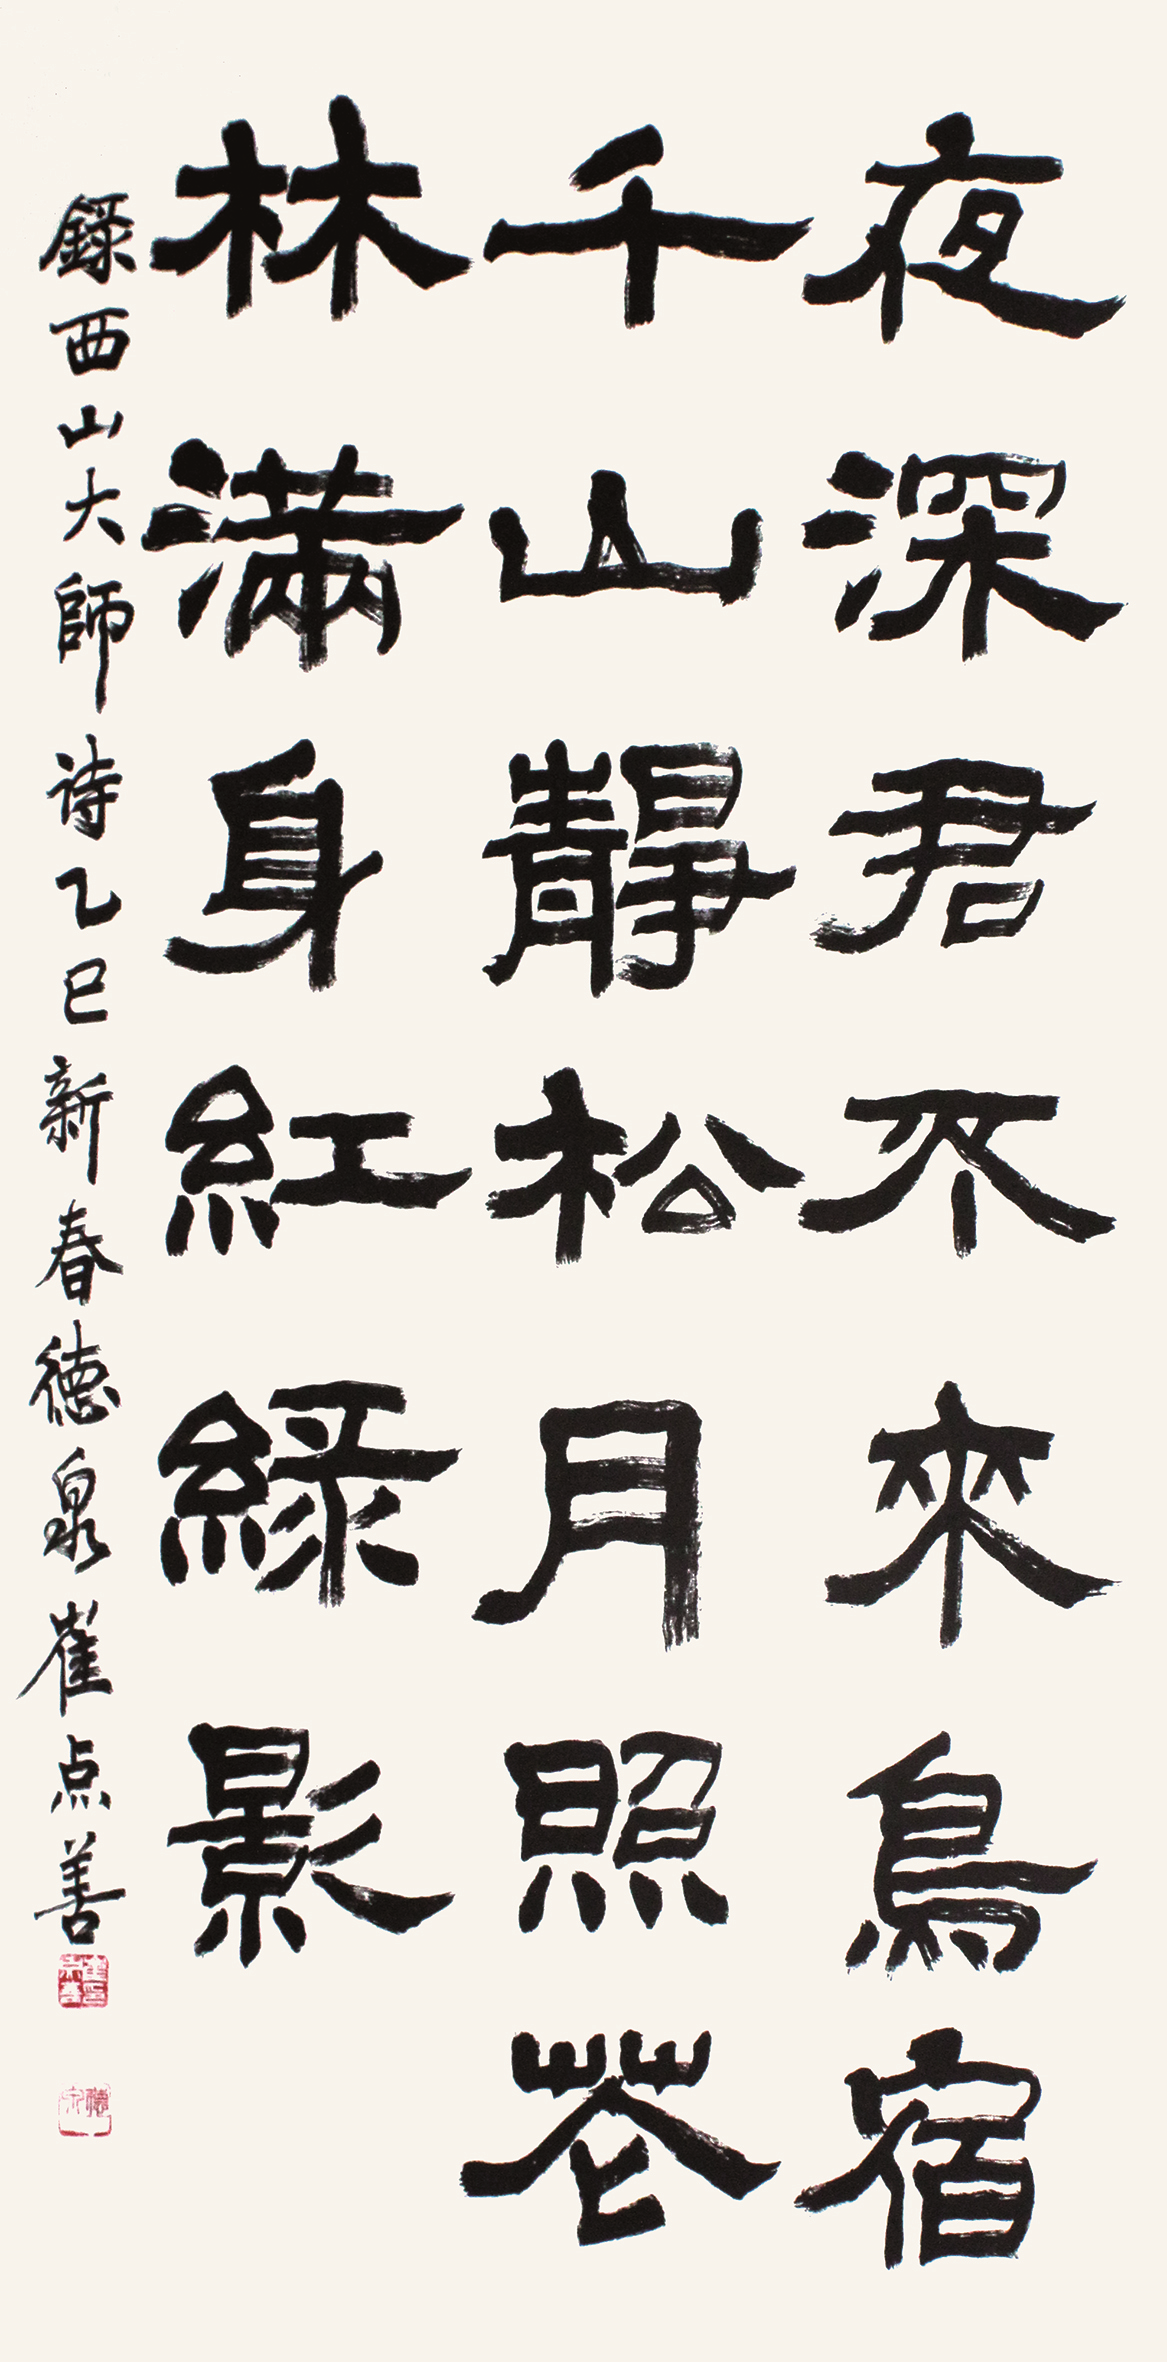 夜深君不來鳥宿
千山靜松月照花
林滿身紅綠影
錄西山大師诗乙巳新春德泉崔点善